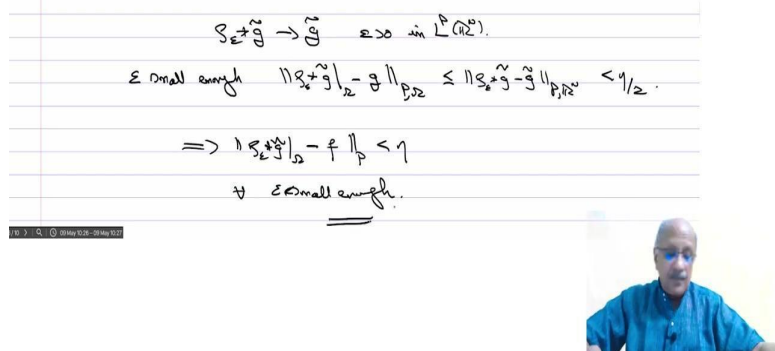 ρ_ε * g̃ → g̃   ε↓0 in L^p(ℝ^N).
ε small enough   ‖ρ_ε * g̃|_Ω - g‖_{p,Ω} ≤ ‖ρ_ε * g̃ - g̃‖_{p,ℝ^N} < η/2.
⇒ ‖ρ_ε * g̃|_Ω - f‖_p < η
∀ ε small enough.
/10 09 May 10:26 - 09 May 10:27